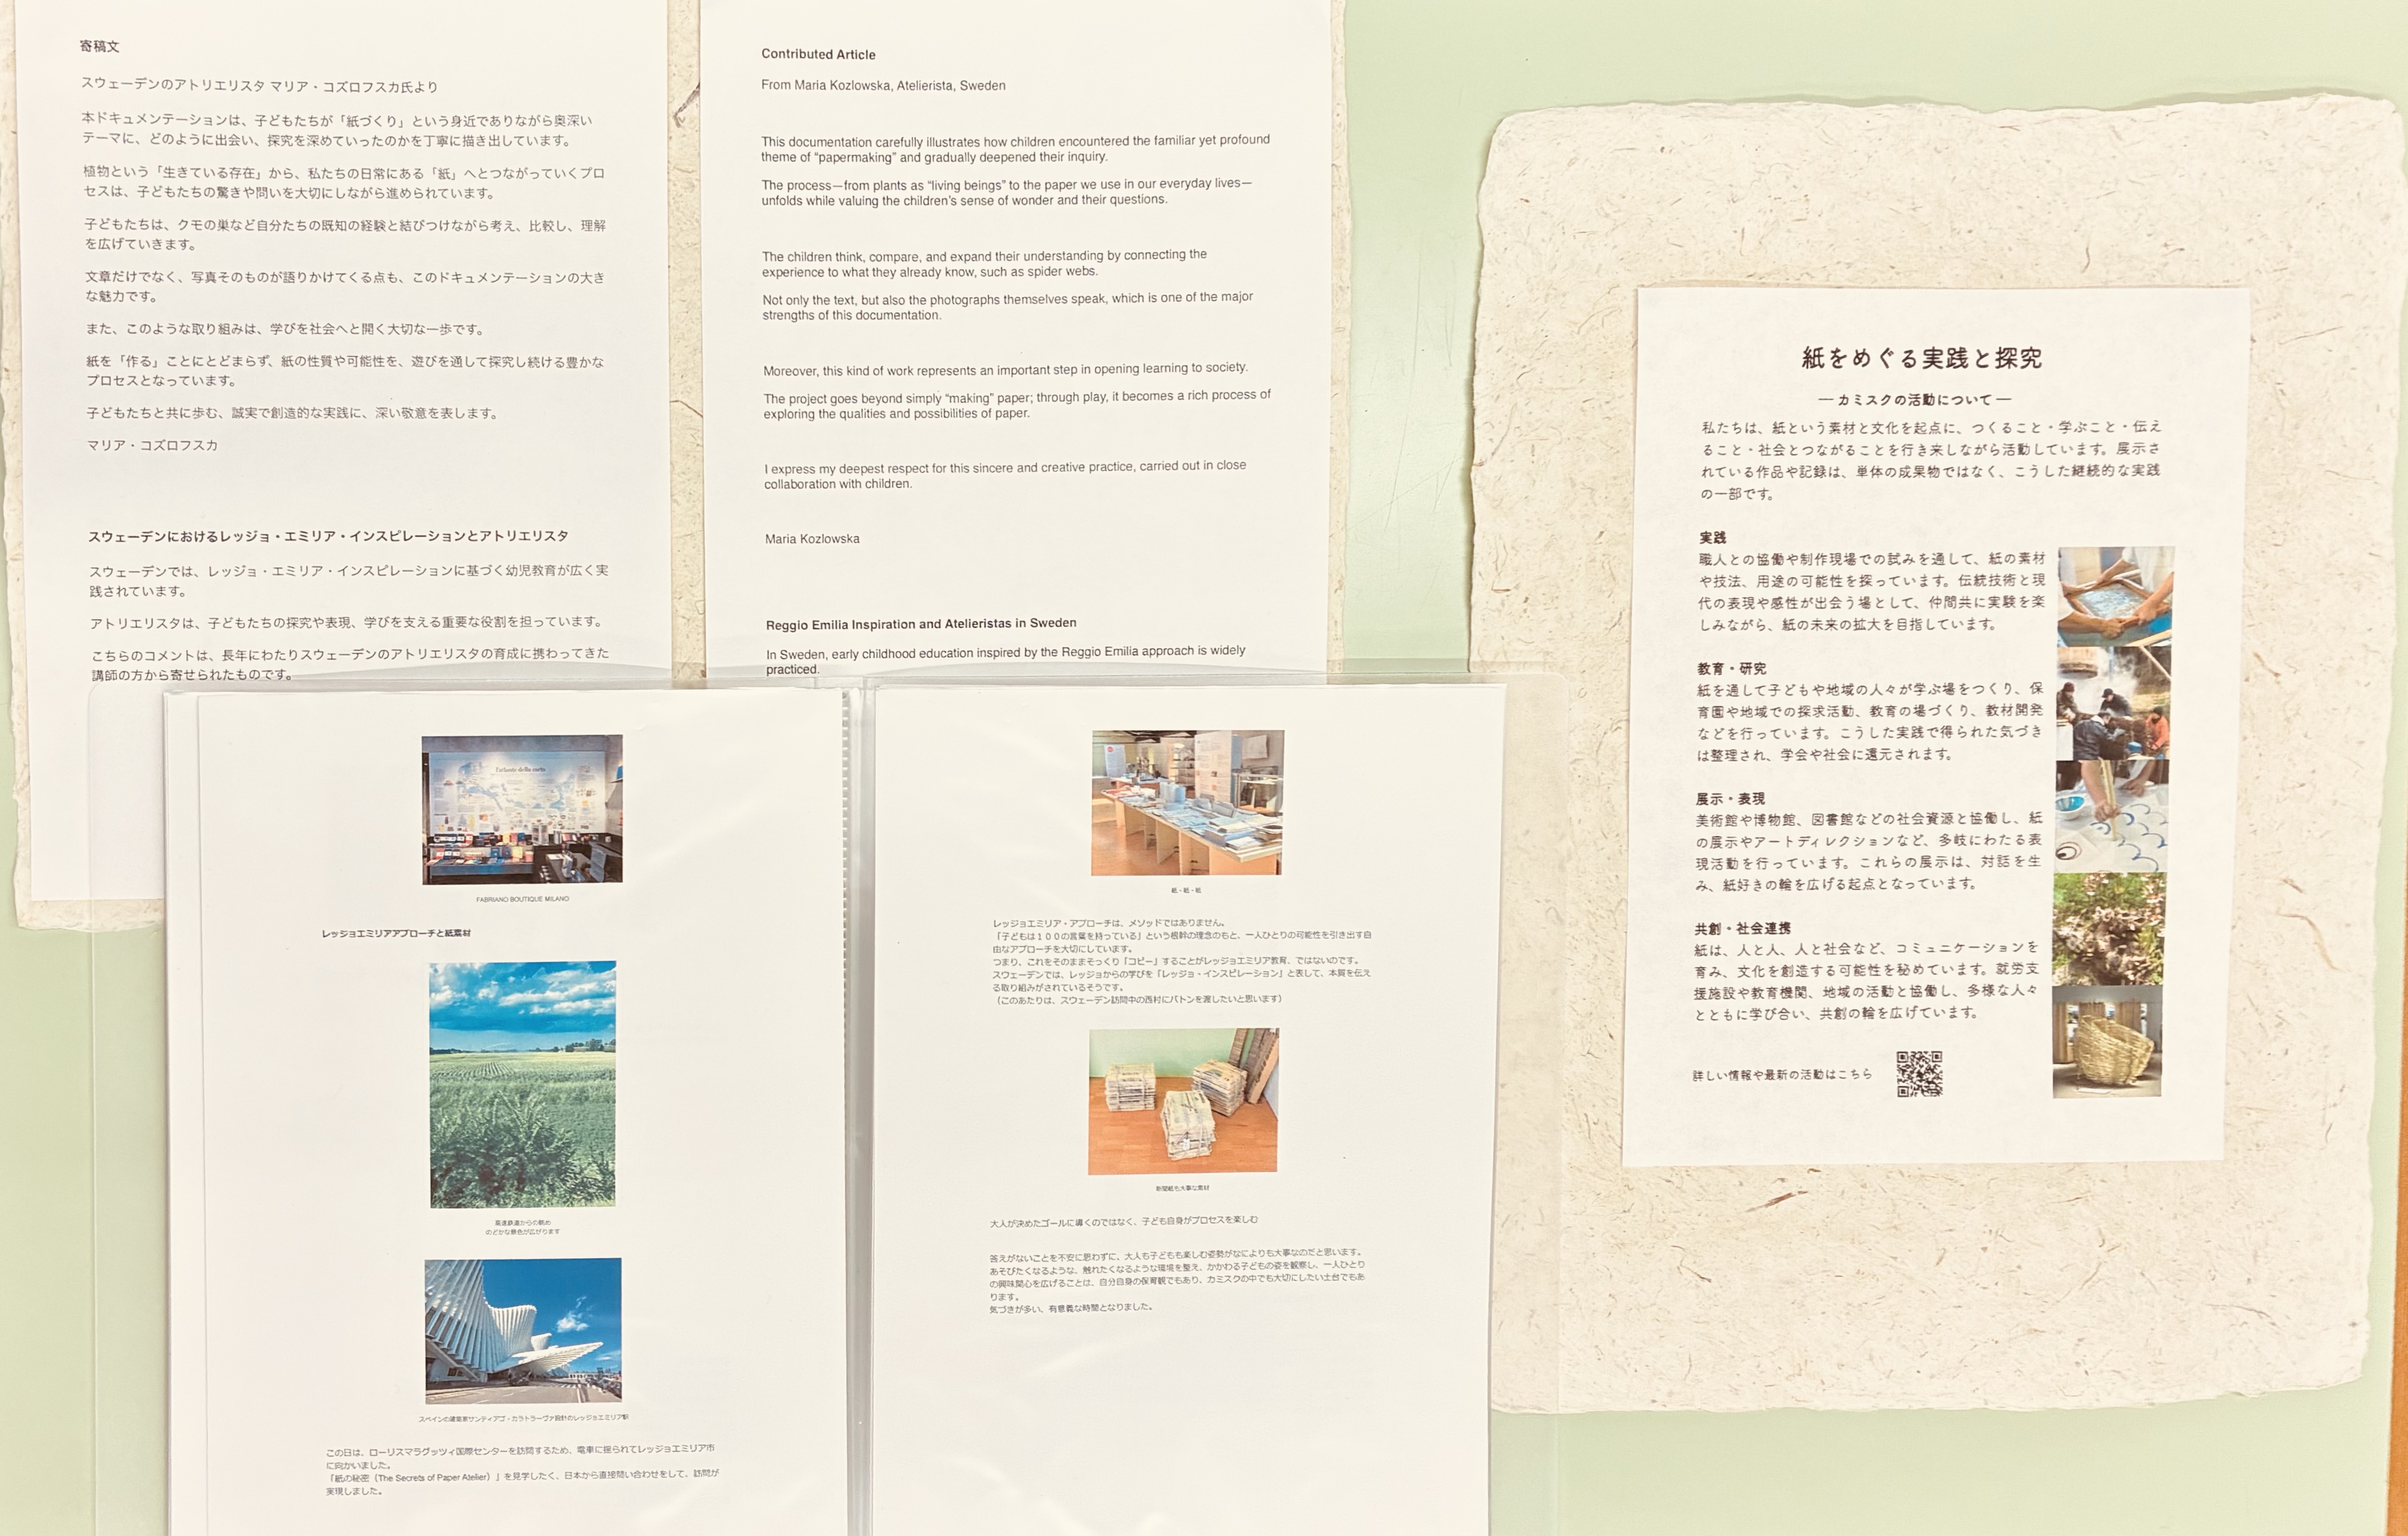 寄稿文
スウェーデンのアトリエリスタ マリア・コズロフスカ氏より
本ドキュメンテーションは、子どもたちが「紙づくり」という身近でありながら奥深い
テーマに、どのように出会い、探究を深めていったのかを丁寧に描き出しています。
植物という「生きている存在」から、私たちの日常にある「紙」へとつながっていくプロ
セスは、子どもたちの驚きや問いを大切にしながら進められています。
子どもたちは、クモの巣など自分たちの既知の経験と結びつけながら考え、比較し、理解
を広げていきます。
文章だけでなく、写真そのものが語りかけてくる点も、このドキュメンテーションの大き
な魅力です。
また、このような取り組みは、学びを社会へと開く大切な一歩です。
紙を「作る」ことにとどまらず、紙の性質や可能性を、遊びを通して探究し続ける豊かな
プロセスとなっています。
子どもたちと共に歩む、誠実で創造的な実践に、深い敬意を表します。
マリア・コズロフスカ
スウェーデンにおけるレッジョ・エミリア・インスピレーションとアトリエリスタ
スウェーデンでは、レッジョ・エミリア・インスピレーションに基づく幼児教育が広く実
践されています。
アトリエリスタは、子どもたちの探究や表現、学びを支える重要な役割を担っています。
こちらのコメントは、長年にわたりスウェーデンのアトリエリスタの育成に携わってきた
講師の方から寄せられたものです。
Contributed Article
From Maria Kozlowska, Atelierista, Sweden
This documentation carefully illustrates how children encountered the familiar yet profound
theme of “papermaking” and gradually deepened their inquiry.
The process—from plants as “living beings” to the paper we use in our everyday lives—
unfolds while valuing the children’s sense of wonder and their questions.
The children think, compare, and expand their understanding by connecting the
experience to what they already know, such as spider webs.
Not only the text, but also the photographs themselves speak, which is one of the major
strengths of this documentation.
Moreover, this kind of work represents an important step in opening learning to society.
The project goes beyond simply “making” paper; through play, it becomes a rich process of
exploring the qualities and possibilities of paper.
I express my deepest respect for this sincere and creative practice, carried out in close
collaboration with children.
Maria Kozlowska
Reggio Emilia Inspiration and Atelieristas in Sweden
In Sweden, early childhood education inspired by the Reggio Emilia approach is widely
practiced.
紙をめぐる実践と探究
― カミスクの活動について ―
私たちは、紙という素材と文化を起点に、つくること・学ぶこと・伝え
ること・社会とつながることを行き来しながら活動しています。展示さ
れている作品や記録は、単体の成果物ではなく、こうした継続的な実践
の一部です。
実践
職人との協働や制作現場での試みを通して、紙の素材
や技法、用途の可能性を探っています。伝統技術と現
代の表現や感性が出会う場として、仲間共に実験を楽
しみながら、紙の未来の拡大を目指しています。
教育・研究
紙を通して子どもや地域の人々が学ぶ場をつくり、保
育園や地域での探求活動、教育の場づくり、教材開発
などを行っています。こうした実践で得られた気づき
は整理され、学会や社会に還元されます。
展示・表現
美術館や博物館、図書館などの社会資源と協働し、紙
の展示やアートディレクションなど、多岐にわたる表
現活動を行っています。これらの展示は、対話を生
み、紙好きの輪を広げる起点となっています。
共創・社会連携
紙は、人と人、人と社会など、コミュニケーションを
育み、文化を創造する可能性を秘めています。就労支
援施設や教育機関、地域の活動と協働し、多様な人々
とともに学び合い、共創の輪を広げています。
詳しい情報や最新の活動はこちら
L'atlante della carta
FABRIANO BOUTIQUE MILANO
レッジョエミリアアプローチと紙素材
高速鉄道からの眺め
のどかな景色が広がります
スペインの建築家サンティアゴ・カラトラーヴァ設計のレッジョエミリア駅
この日は、ローリスマラグッツィ国際センターを訪問するため、電車に揺られてレッジョエミリア市
に向かいました。
「紙の秘密（The Secrets of Paper Atelier）」を見学したく、日本から直接問い合わせをして、訪問が
実現しました。
紙・紙・紙
レッジョエミリア・アプローチは、メソッドではありません。
「子どもは１００の言葉を持っている」という根幹の理念のもと、一人ひとりの可能性を引き出す自
由なアプローチを大切にしています。
つまり、これをそのままそっくり「コピー」することがレッジョエミリア教育、ではないのです。
スウェーデンでは、レッジョからの学びを「レッジョ・インスピレーション」と表して、本質を伝え
る取り組みがされているそうです。
（このあたりは、スウェーデン訪問中の西村にバトンを渡したいと思います）
新聞紙も大事な素材
大人が決めたゴールに導くのではなく、子ども自身がプロセスを楽しむ
答えがないことを不安に思わずに、大人も子どもも楽しむ姿勢がなによりも大事なのだと思います。
あそびたくなるような、触れたくなるような環境を整え、かかわる子どもの姿を観察し、一人ひとり
の興味関心を広げることは、自分自身の保育観でもあり、カミスクの中でも大切にしたい土台でもあ
ります。
気づきが多い、有意義な時間となりました。